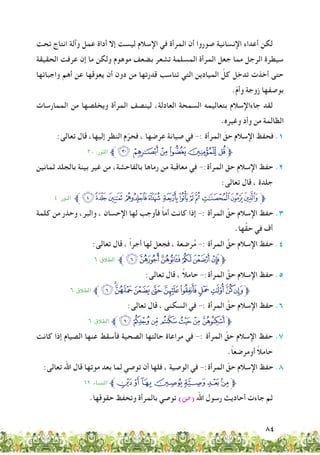 لكن أعداء الإنسانية صوروا أن المرأة في الإسلام ليست إلا أداة عمل وآلة انتاج تحت
سيطرة الرجل مما جعل المرأة المسلمة تشعر بضعف موهوم ولكن ما إن عرفت الحقيقة
حتى أخذت تدخل كل الميادين التي تناسب قدرتها من دون أن يعوقها عن أهم واجباتها
بوصفها زوجة وأم.
لقد جاءالإسلام بتعاليمه السمحة العادلة، لينصف المرأة ويخلصها من الممارسات
الظالمة من وأد وغيره.
١. فحفظ الإسلام حق المرأة :- في صيانة عرضها ، فحرّم النظر إليها، قال تعالى:
﴿ قُل لِّلْمُؤْمِنِينَ يَغُضُّوا۟ مِنْ أَبْصَـٰرِهِمْ ﴾ النور: ٣٠
٢. حفظ الإسلام حق المرأة :- في معاقبة من رماها بالفاحشة، من غير بينة بالجلد ثمانين
جلدة ، قال تعالى:
﴿ وَٱلَّذِينَ يَرْمُونَ ٱلْمُحْصَنَـٰتِ ثُمَّ لَمْ يَأْتُوا۟ بِأَرْبَعَةِ شُهَدَآءَ فَٱجْلِدُوهُمْ ثَمَـٰنِينَ جَلْدَةً ﴾ النور: ٤
٣. حفظ الإسلام حقّ المرأة :- إذا كانت أماً فأوجب لها الإحسان ، والبر، وحذر من كلمة
أف في حقّها.
٤. حفظ الإسلام حقّ المرأة :- مُرضعة ، فجعل لها أجراً ، قال تعالى:
﴿ فَإِنْ أَرْضَعْنَ لَكُمْ فَـَٔاتُوهُنَّ أُجُورَهُنَّ ﴾ الطلاق: ٦
٥. حفظ الإسلام حقّ المرأة:- حاملاً ، قال تعالى:
﴿ وَإِن كُنَّ أُو۟لَـٰتِ حَمْلٍ فَأَنفِقُوا۟ عَلَيْهِنَّ حَتَّىٰ يَضَعْنَ حَمْلَهُنَّ ﴾ الطلاق: ٦
٦. حفظ الإسلام حقّ المرأة :- في السكنى ، قال تعالى:
﴿ أَسْكِنُوهُنَّ مِنْ حَيْثُ سَكَنتُم مِّن وُجْدِكُمْ ﴾ الطلاق: ٦
٧. حفظ الإسلام حقّ المرأة :- في مراعاة حالتها الصحية فأسقط عنها الصيام إذا كانت
حاملاً أومرضعا.
٨. حفظ الإسلام حقّ المرأة:- في الوصية ، فلها أن توصي لما بعد موتها قال الله تعالى:
﴿ مِنۢ بَعْدِ وَصِيَّةٍ يُوصِينَ بِهَآ أَوْ دَيْنٍ ﴾ النساء: ١٢
ثم جاءت أحاديث رسول الله (ص) توصي بالمرأة وتحفظ حقوقها.
٨٤